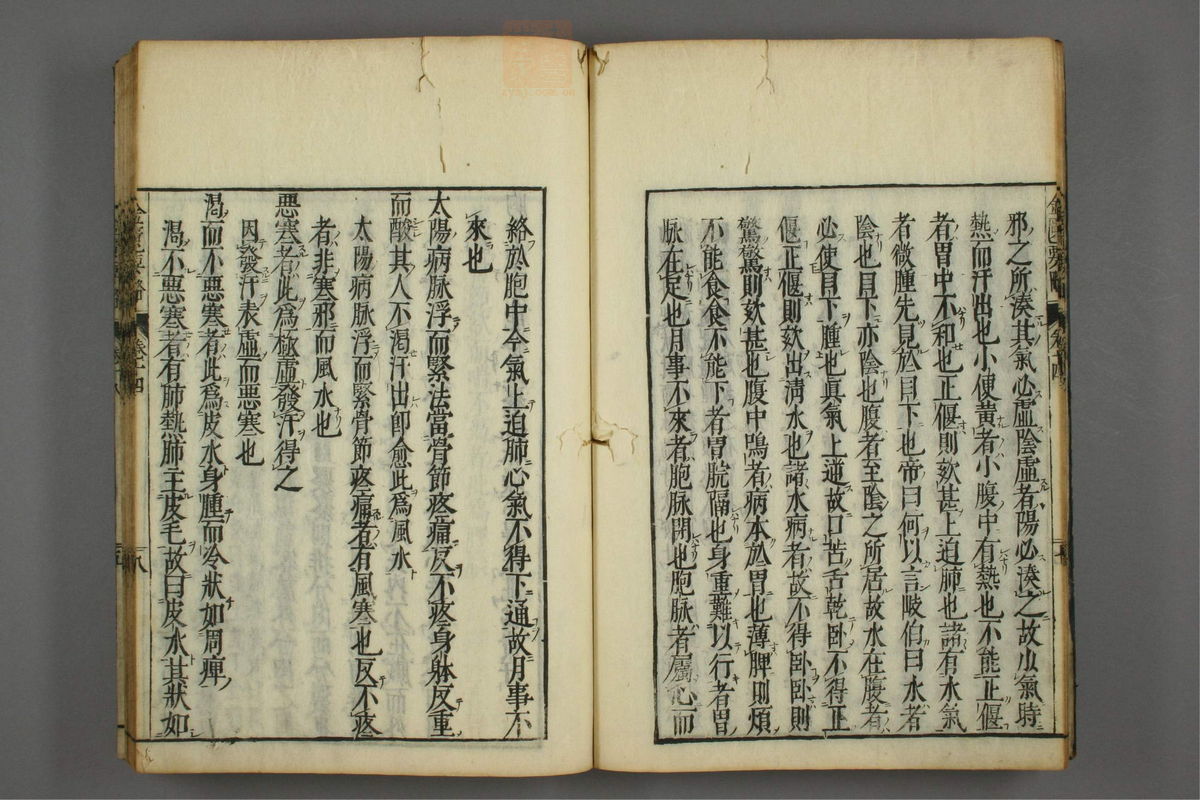 邪之所湊其氣必虛陰虛者陽必湊之故少氣時
熱而汗出也小便黃者小腹中有熱也不能正偃
者胃中不和也正偃則欬甚上迫肺也諸有水氣
者微腫先見於目下也帝曰何以言岐伯曰水者
陰也目下亦陰也腹者至陰之所居故水在腹者
必使目下腫也真氣上逆故口苦舌乾臥不得正
偃正偃則欬出清水也諸水病者故不得臥臥則
驚驚則欬甚也腹中鳴者病本於胃也薄脾則煩
不能食食不能下者胃脘隔也身重難以行者胃
脉在足也月事不來者胞脉閉也胞脉者屬心而
絡於胞中今氣上迫肺心氣不得下通故月事不
來也
太陽病脉浮而緊法當骨節疼痛反不疼身躰反重
而酸其人不渴汗出即愈此為風水
太陽病脉浮而緊骨節疼痛者有風寒也反不疼
者非寒邪而風水也
惡寒者此為極虛發汗得之
因發汗表虛而惡寒也
渴而不惡寒者此為皮水身腫而冷狀如周痺
渴不惡寒者有肺熱肺主皮毛故曰皮水其狀如